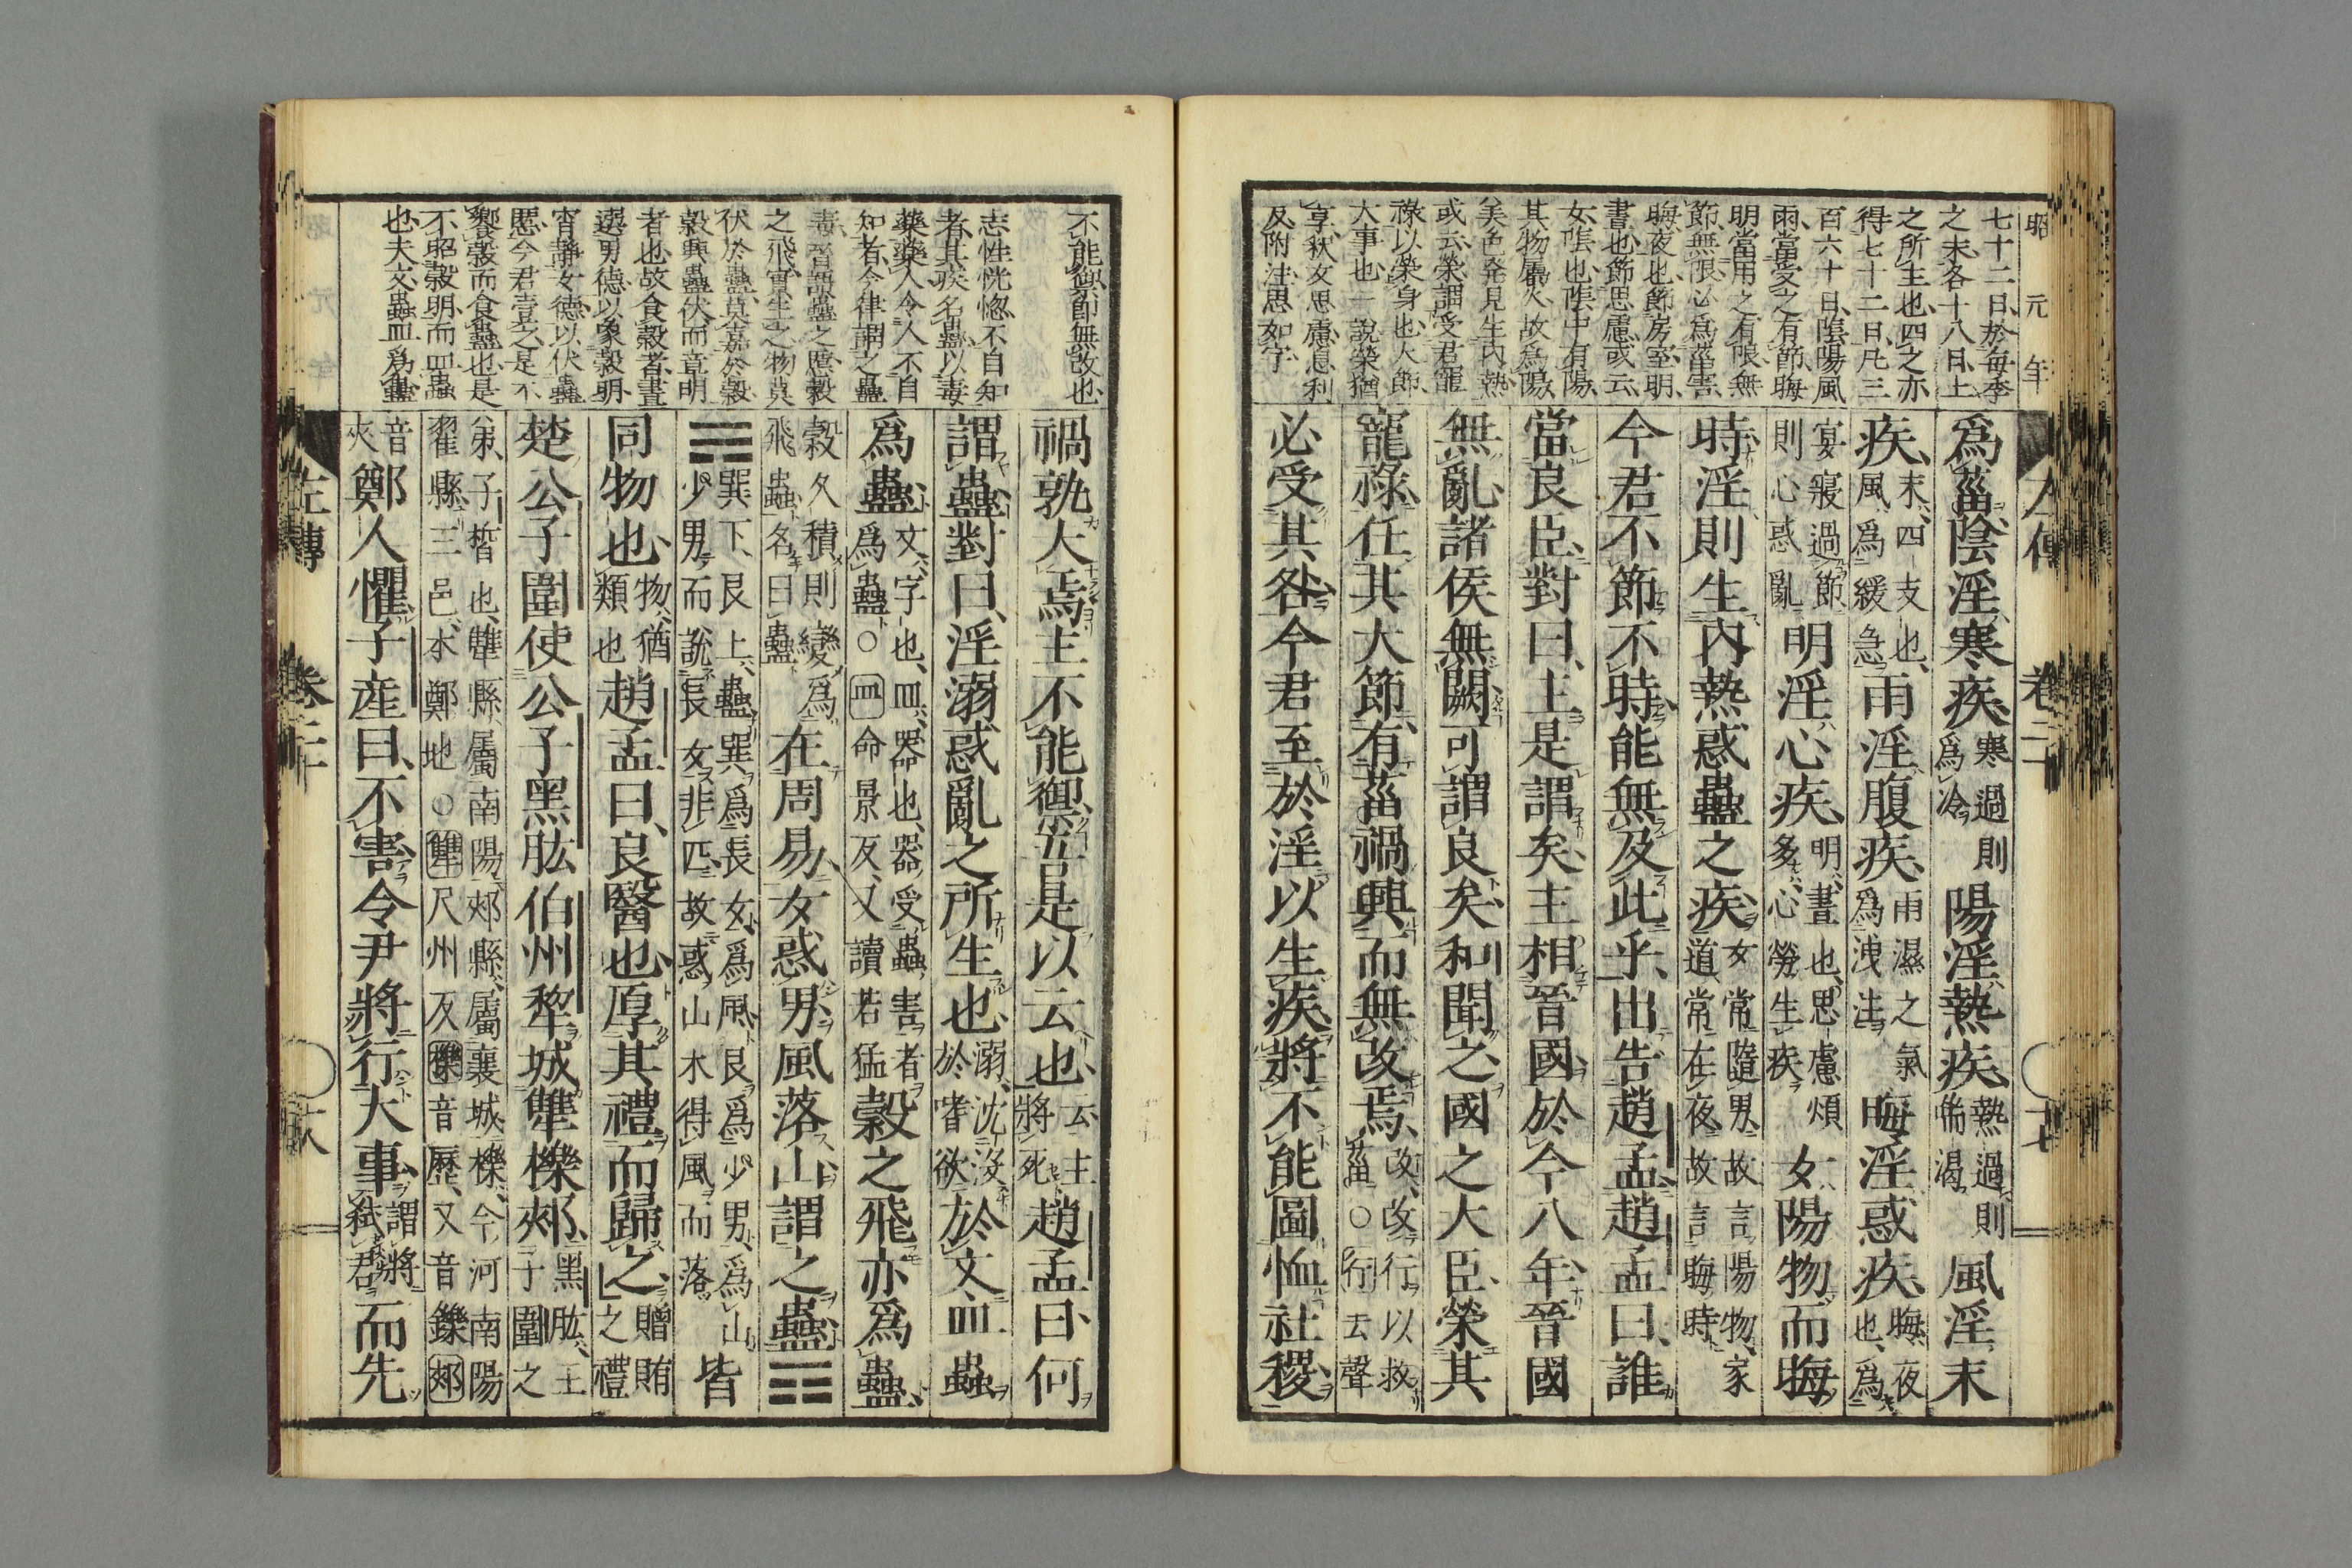 昭元年
七十二日、於每季
之末各十八日、土
之所主也、四之亦
得七十二日、凡三
百六十日、陰陽風
雨、當受之有節、晦
明當用之有限、無
節無限、必爲菑害、
晦夜也、節房室、明
晝也、節思慮、或云
女陰也、陰中有陽、
其物屬火、故爲陽、
美色発見生内熱、
或云、榮謂受君寵
祿以榮身也、大節、
大事也、一說榮猶
享、狄女思慮、息利
及附注、思如字
爲菑、陰淫寒疾、寒過則爲冷、陽淫熱疾、熱過則喘渴、風淫末
疾、末、四支也、風爲緩急、雨淫腹疾、雨濕之氣爲洩注、晦淫惑疾、晦、夜也、爲
宴寢過節、則心惑亂、明淫心疾、明、晝也、思慮煩多、心勞生疾、女陽物而晦
時、淫則生內熱惑蠱之疾、女常隨男、故言陽物、家道常在夜、故言晦時、
今君不節不時、能無及此乎、出告趙孟、趙孟曰、誰
當良臣、對曰、主是謂矣、主相晉國、於今八年、晉國
無亂、諸侯無闕、可謂良矣、和聞之、國之大臣、榮其
寵祿、任其大節、有菑禍興而無改焉、改、改行以救菑○行去聲
必受其咎、今君至於淫以生疾、將不能圖恤社稷、
左傳 卷二十 十七
不能禦節無改也、
志性恍惚、不自知
者、其疾名蠱、以毒
藥藥人、令人不自
知者、今律謂之蠱
毒、晉語、蠱之慝、穀
之飛、實生之、物莫
伏於蠱、莫嘉於穀、
穀興蠱伏而章明
者也、故食穀者、晝
選男德、以象穀明、
宵靜女德、以伏蠱
慝、今君壹之、是不
饗穀而食蠱也、是
不昭穀明、而皿蠱
也、夫文、蟲皿爲蠱
禍孰大焉、主不能禦、吾是以云也、云主將死、趙孟曰、何
謂蠱、對曰、淫溺惑亂之所生也、溺、沈沒於嗜欲、於文、皿蟲
爲蠱、文、字也、皿、器也、器受蟲害者爲蠱○皿命景反、又讀若猛、穀之飛亦爲蠱、
穀久積則變爲飛蟲、名曰蠱、在周易、女惑男、風落山、謂之蠱䷑
巽下艮上、蠱、巽爲長女、爲風、艮爲少男、爲山、少男而說長女、非匹、故惑、山木得風而落、皆
同物也、物、猶類也、趙孟曰、良醫也、厚其禮而歸之、贈賄之禮
楚公子圍使公子黑肱伯州犂城犫櫟郟、黑肱、王子圍之
弟、子晳也、犫縣屬南陽、郟縣、屬襄城、櫟、今河南陽翟縣、三邑、本鄭地○犫尺州反、櫟音歷、又音鑠、郟
音夾、鄭人懼、子產曰、不害、令尹將行大事、謂將弑君、而先
左傳 卷二十 十八